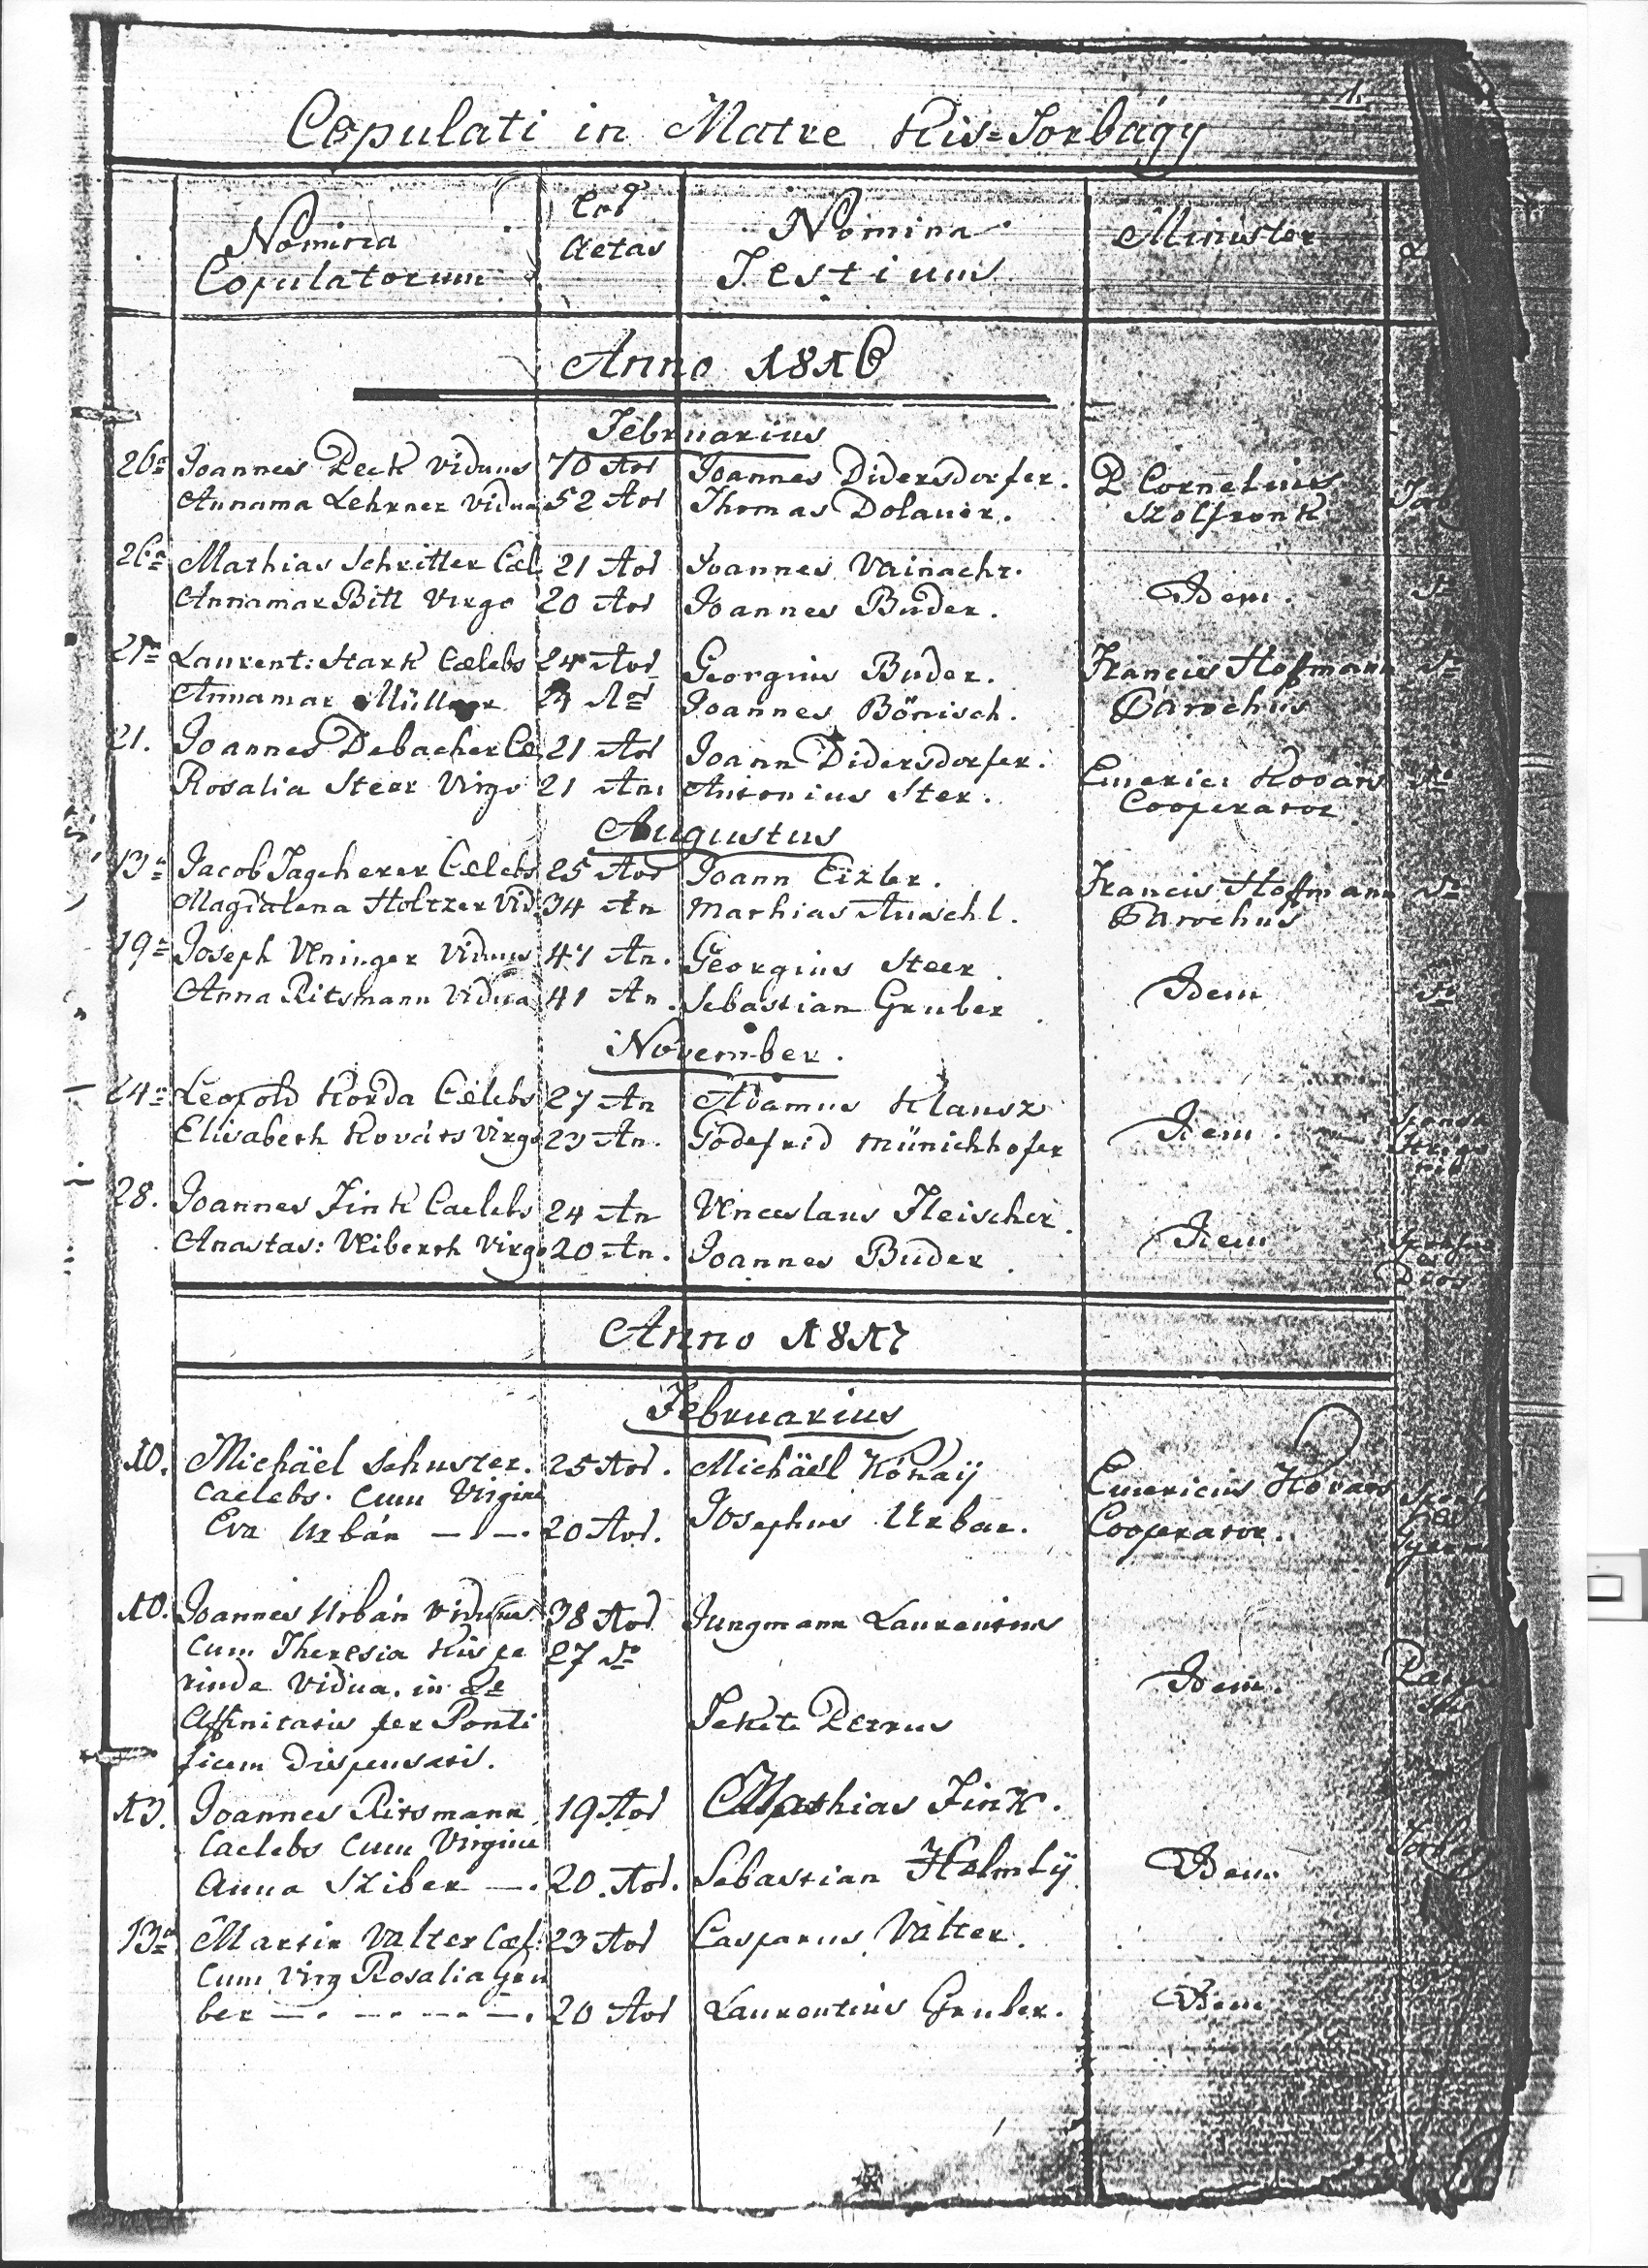 1.
Copulati in Matre Kis-Torbágy
Nomina Copulatorum
Eorq Aetas
Nomina Testium
Minister
Anno 1816
Februarius
26a Joannes Peck Viduus 70 Aor Joannes Didersdorfer. P Cornelius
Annama Lehrner Vidua 52 Aor Thomas Dolauer.
26a Mathias Schritter Cæl 21 Aor Joannes Vainachr. Idem.
Annamar Bitt Virgo 20 Aor Joannes Buder.
27a Laurent: Stark Cælebs 24 Aor Georgius Buder. Francis Hoffmann
Annamar Müllner Joannes Bönisch. Parochus
21. Joannes Debacher Cæ 21 Aor Joann Didersdorfer. Emeric: Kovats
Rosalia Steer Virgo 21 An: Antonius Ster. Cooperator.
Augustus
13a Jacob Tagcherer Cælebs 25 Aor Joann Eixler. Francis Hoffmann
Magdalena Holtzer Vid. 34 An Mathias Auschl. Parochus
19a Joseph Uninger Viduus 47 An. Georgius Steer. Idem
Anna Ritsmann Vidua 41 An. Sebastian Gruber
November.
24a Leopold Korda Cælebs 27 An Adamus Klausz Idem.
Elisabeth Kováts Virgo 23 An. Godefrid Münichhofer
28. Joannes Fink Caelebs 24 An Venceslaus Fleischer. Idem
Anastas: Viberth Virgo 20 An. Joannes Buder.
Anno 1817
Februarius
10. Michäel Schuster. 25 Aor. Michäel Kónaÿ Emericus Kovats
Caelebs. Cum Virgine
Eva Urbán 20 Aor. Josephus Urban. Cooperator.
10. Joannes Urbán Viduus. 38 Aor Jungmann Laurentius
Cum Theresia Kis pe 27 do
rinde Vidua. in Idem.
Affinitatis per Ponti Fekete Petrus
ficem Dispensatis.
13. Joannes Ritsmann 19 Aor Mathias Fink.
Caelebs Cum Virgine
Anna Sziber 20. Aor. Sebastian Helmlÿ Idem
13a Martin Valter Cæl. 23 Aor Casparus Valter.
Cum Virg Rosalia Gru
ber 20 Aor Laurentius Gruber. Idem